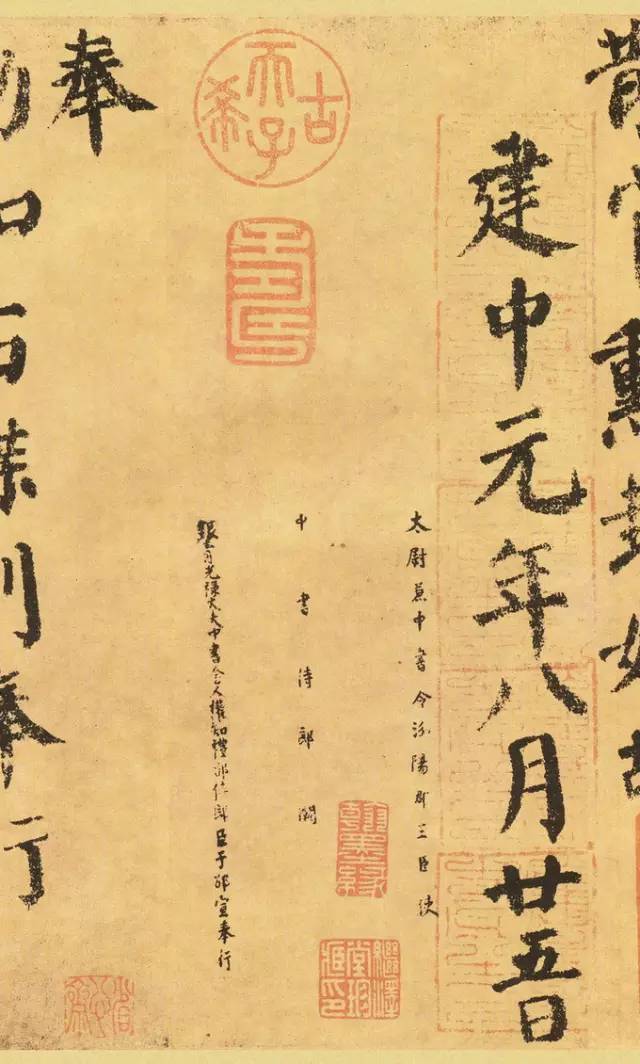 散官勳封如故
建中元年八月廿五日
太尉兼中書令汾陽郡王臣使
中書侍郎闕
銀青光祿大夫中書舍人權知禮部侍郎臣于邵宣奉行
奉
勑如右牒到奉行
古希天子
壽